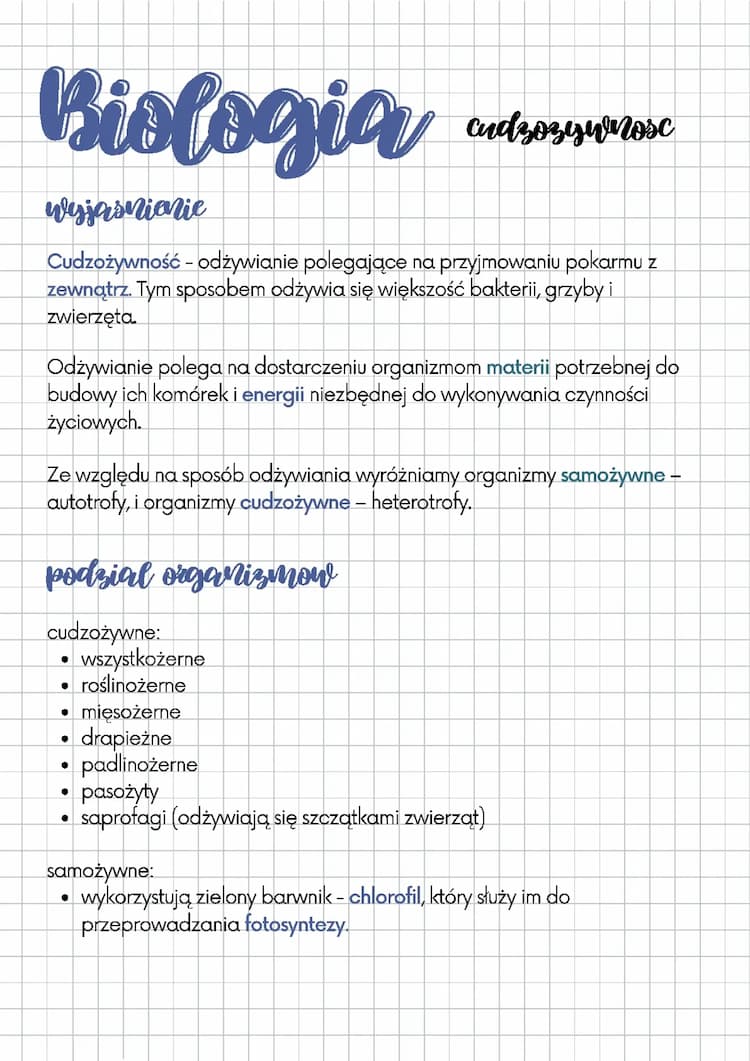 Biologia
cudzozywnosc
wyjasnienie
Cudzożywność - odżywianie polegające na przyjmowaniu pokarmu z
zewnątrz. Tym sposobem odżywia się większość bakterii, grzyby i
zwierzęta.
Odżywianie polega na dostarczeniu organizmom materii potrzebnej do
budowy ich komórek i energii niezbędnej do wykonywania czynności
życiowych.
Ze względu na sposób odżywiania wyróżniamy organizmy samożywne –
autotrofy, i organizmy cudzożywne – heterotrofy.
podzial organizmow
cudzożywne:
• wszystkożerne
• roślinożerne
• mięsożerne
• drapieżne
• padlinożerne
• pasożyty
• saprofagi (odżywiają się szczątkami zwierząt)
samożywne:
• wykorzystują zielony barwnik - chlorofil, który służy im do
przeprowadzania fotosyntezy.